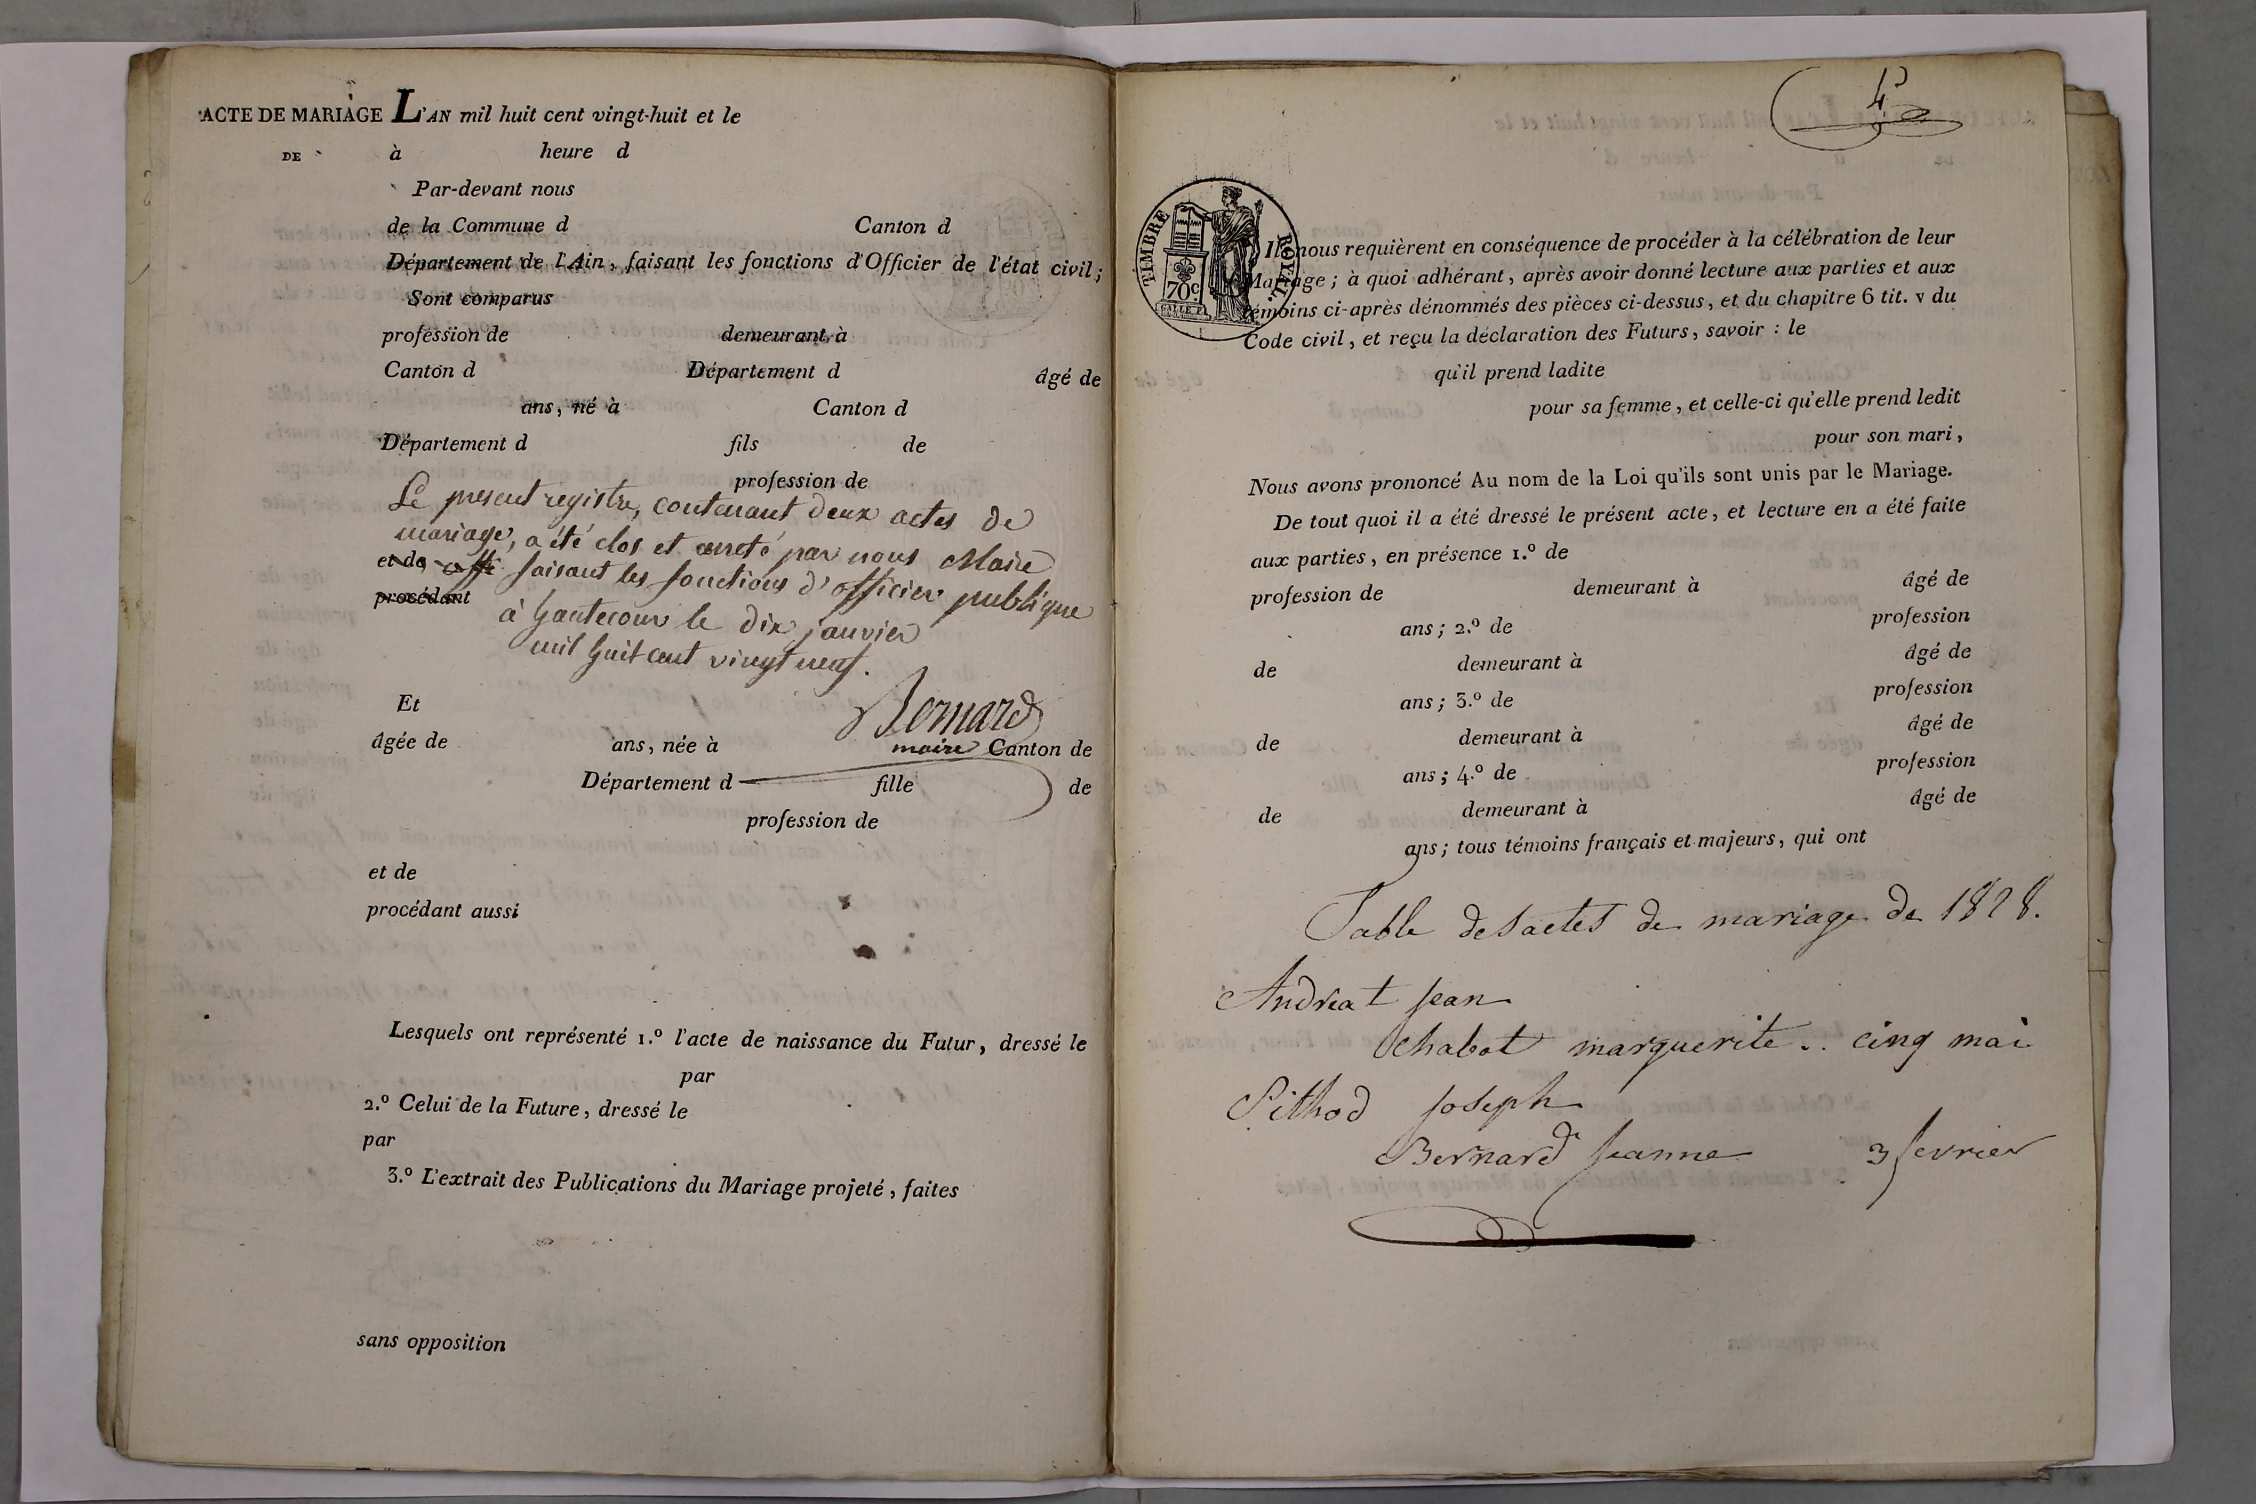 ACTE DE MARIAGE L'AN mil huit cent vingt-huit et le
DE à heure d
Par-devant nous
de la Commune d Canton d
Département de l'Ain, faisant les fonctions d'Officier de l'état civil;
Sont comparus
profession de demeurant à
Canton d Département d âgé de
ans, né à Canton d
Département d fils de
profession de
Le present registre, contenant deux actes de
mariage, a été clos et arreté par nous Maire
et de faisant les fonctions d'officier publique
procédant
à hautecour le dix janvier
mil huit cent vingt neuf.
Et
Bernard
âgée de ans, née à maire Canton de
Département d fille de
profession de
et de
procédant aussi
Lesquels ont représenté 1.º l'acte de naissance du Futur, dressé le
par
2.º Celui de la Future, dressé le
par
3.º L'extrait des Publications du Mariage projeté, faites
sans opposition
4
TIMBRE ROYAL.
70c
Ils nous requièrent en conséquence de procéder à la célébration de leur
Mariage; à quoi adhérant, après avoir donné lecture aux parties et aux
témoins ci-après dénommés des pièces ci-dessus, et du chapitre 6 tit. v du
Code civil, et reçu la déclaration des Futurs, savoir : le
qu'il prend ladite
pour sa femme, et celle-ci qu'elle prend ledit
pour son mari,
Nous avons prononcé Au nom de la Loi qu'ils sont unis par le Mariage.
De tout quoi il a été dressé le présent acte, et lecture en a été faite
aux parties, en présence 1.º de
profession de demeurant à âgé de
ans; 2.º de profession
de demeurant à âgé de
ans; 3.º de profession
de demeurant à âgé de
ans; 4.º de profession
de demeurant à âgé de
ans; tous témoins français et majeurs, qui ont
Table des actes de mariage de 1828.
Andréat Jean
Chabot marguerite .. cinq mai
Pithod Joseph
Bernard Jeanne 3 fevrier